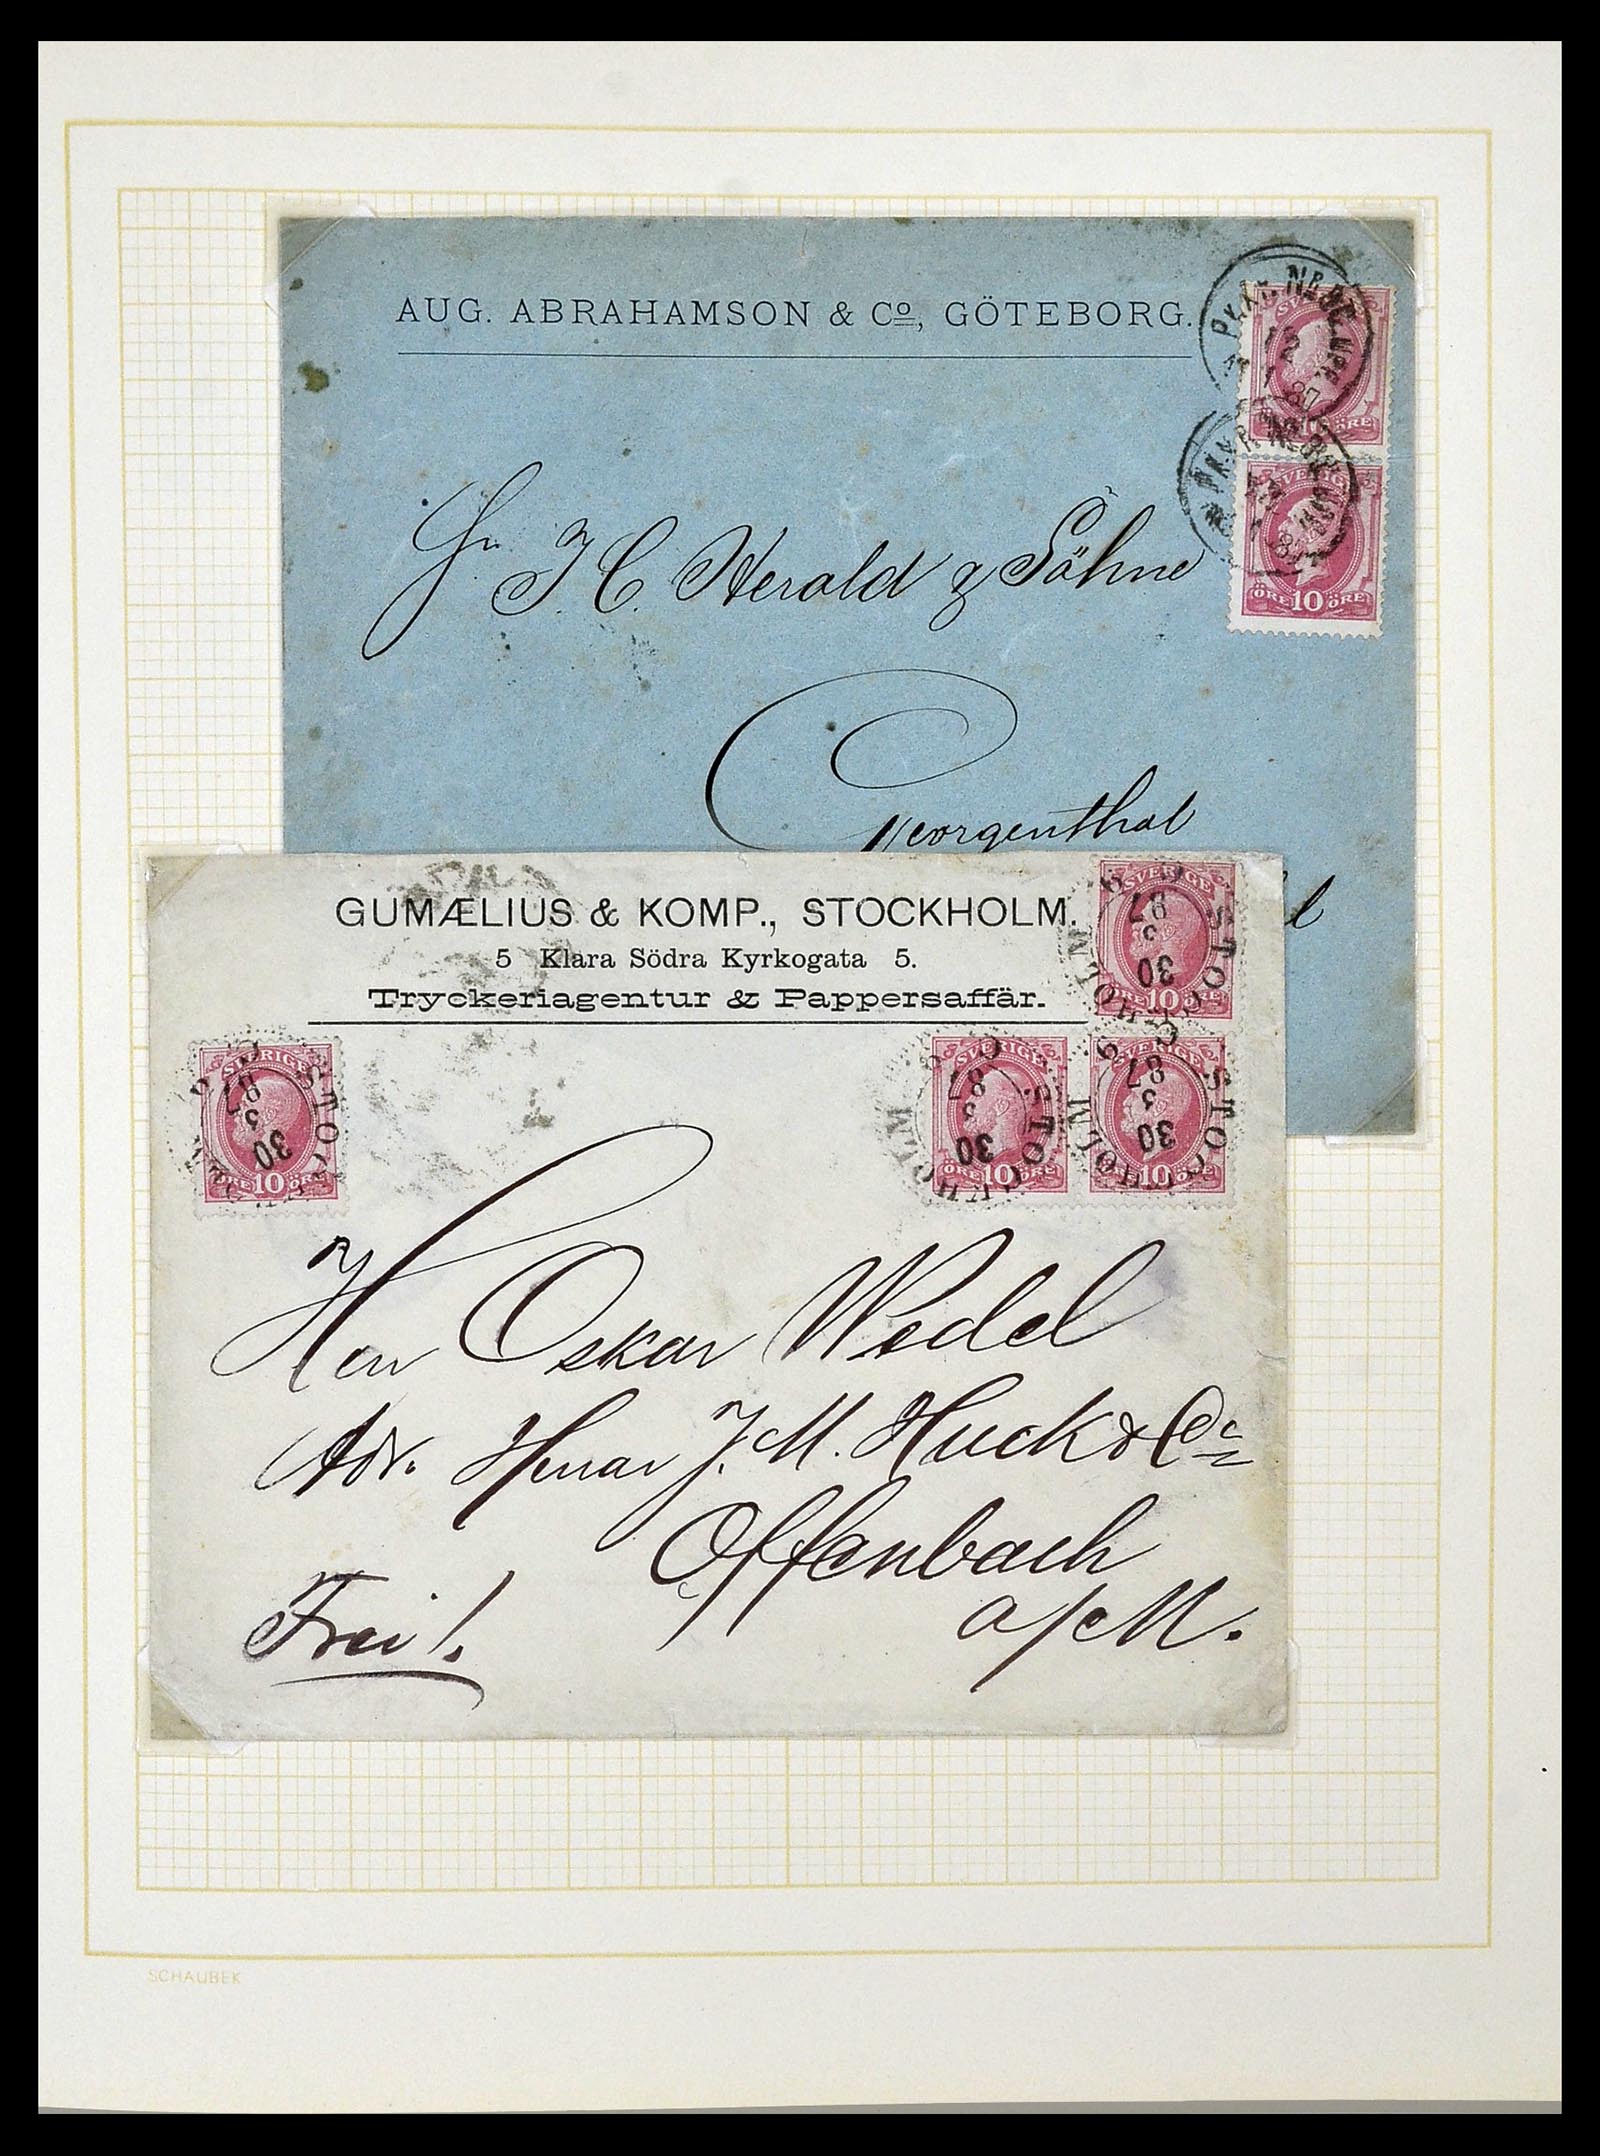 AUG. ABRAHAMSON & Co, GÖTEBORG.
PKXP. No
12
1
87
SVERIGE
10 ÖRE
SVERIGE
ÖRE 10 ÖRE
Hr. J C. Herold & Söhne
Georgenthal
GUMÆLIUS & KOMP., STOCKHOLM.
5 Klara Södra Kyrkogata 5.
Tryckeriagentur & Pappersaffär.
SVERIGE
ÖRE 10 ÖRE
STOCKHOLM
30
3
87
SVERIGE
ÖRE 10 ÖRE
STOCKHOLM
30
3
87
SVERIGE
ÖRE 10 ÖRE
STOCKHOLM
30
3
87
SVERIGE
ÖRE 10 ÖRE
STOCKHOLM
30
3
87
Herr Oskar Wedel
Adr. Herrar J. M. Huck & Co
Offenbach
a/M.
Frei!.
SCHAUBEK